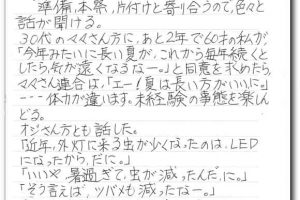 準備、本祭、片付けと寄り合うので、色々と
話が聞ける。
30代のママさん方に、あと2年で60才の私が、
「今年みたいに長い夏が、これから毎年続くと
したら、気が遠くなるなー。」と同意を求めたら、
ママさん連合は、「エー!夏は長い方がいいに。」
---体力が違います。未経験の事態を楽しん
どる。
オジさん方とも話した。
「近年、外灯に来る虫が少くなったのは、LED
になったから、だに。」
「いいや、暑過ぎて、虫が減ったんだ、に。」
「そう言えば、ツバメも減ったなー。」